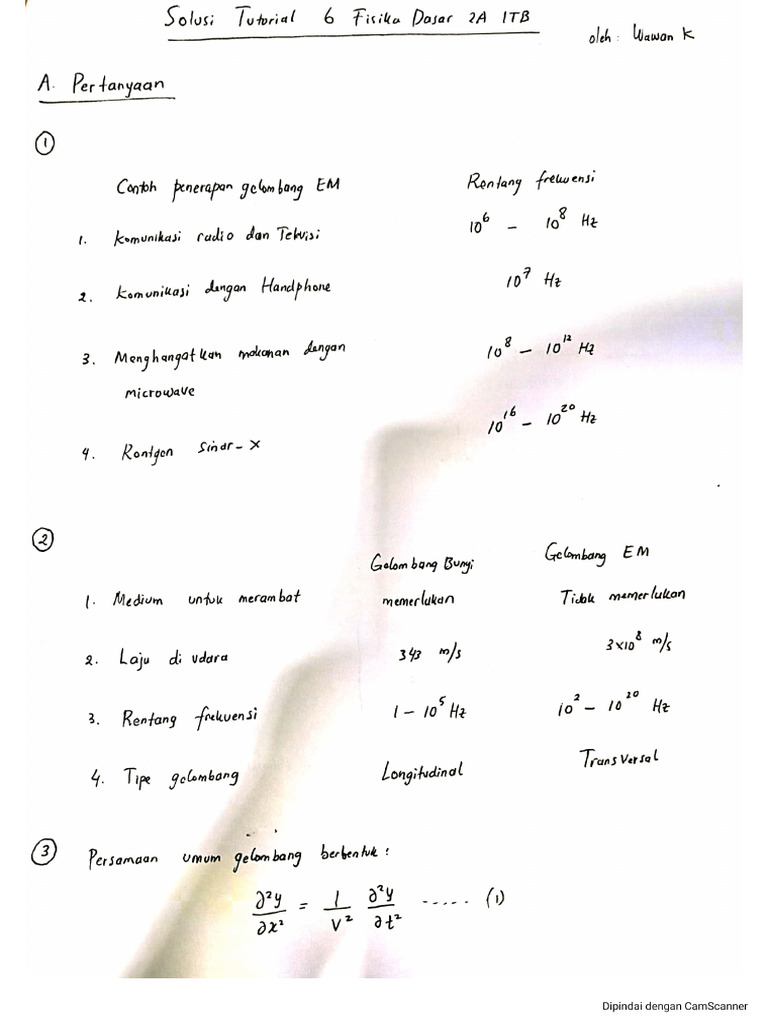 Solusi Tutorial 6 Fisika Dasar 2A ITB
oleh: Wawan K
A. Pertanyaan
①
Contoh penerapan gelombang EM Rentang frekuensi
1. Komunikasi radio dan Televisi 10⁶ – 10⁸ Hz
2. Komunikasi dengan Handphone 10⁷ Hz
3. Menghangatkan makanan dengan 10⁸ – 10¹² Hz
microwave
4. Rontgen Sinar-X 10¹⁶ – 10²⁰ Hz
②
Gelombang Bunyi Gelombang EM
1. Medium untuk merambat memerlukan Tidak memerlukan
2. Laju di udara 343 m/s 3×10⁸ m/s
3. Rentang frekuensi 1 – 10⁵ Hz 10² – 10²⁰ Hz
4. Tipe gelombang Longitudinal Transversal
③ Persamaan umum gelombang berbentuk:
∂²y/∂x² = 1/v² ∂²y/∂t² ..... (1)
Dipindai dengan CamScanner